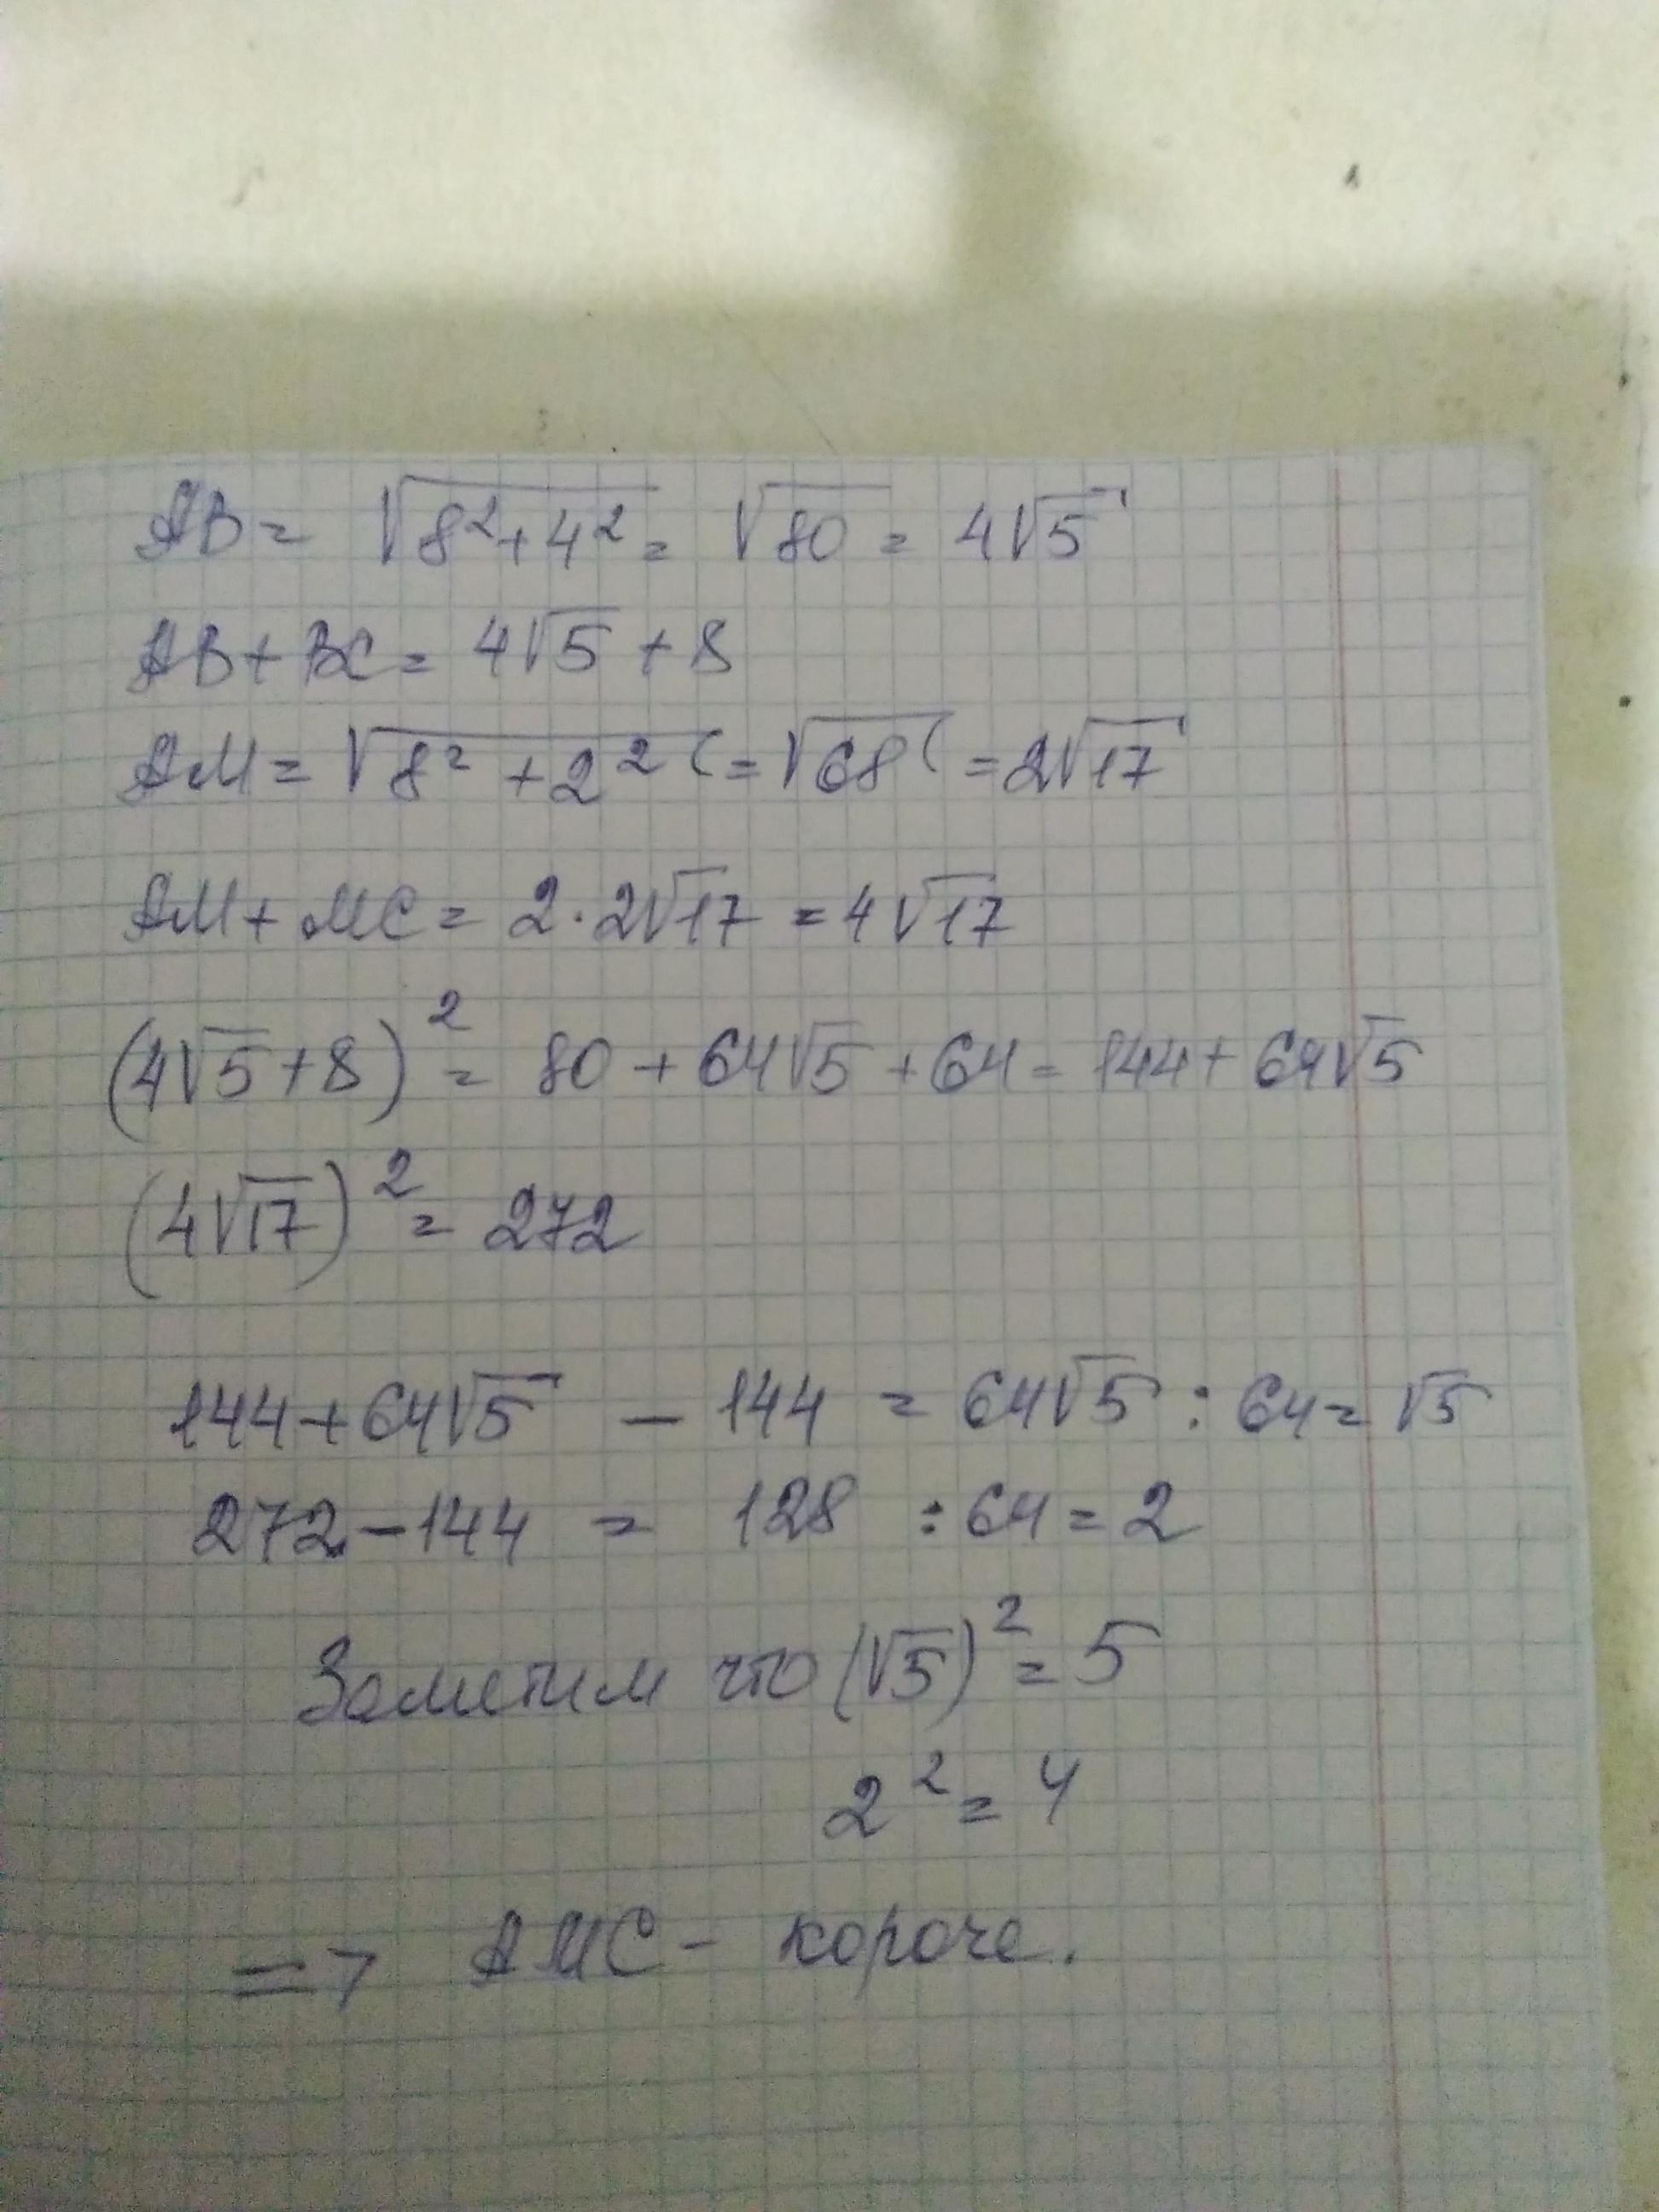 AB = √8²+4² = √80 = 4√5
AB + BC = 4√5 + 8
AM = √8² + 2² = √68 = 2√17
AM + MC = 2 · 2√17 = 4√17
(4√5 + 8)² = 80 + 64√5 + 64 = 144 + 64√5
(4√17)² = 272
144 + 64√5 – 144 = 64√5 : 64 = √5
272 – 144 = 128 : 64 = 2
Заметим что (√5)² = 5
2² = 4
=> AMC – короче.